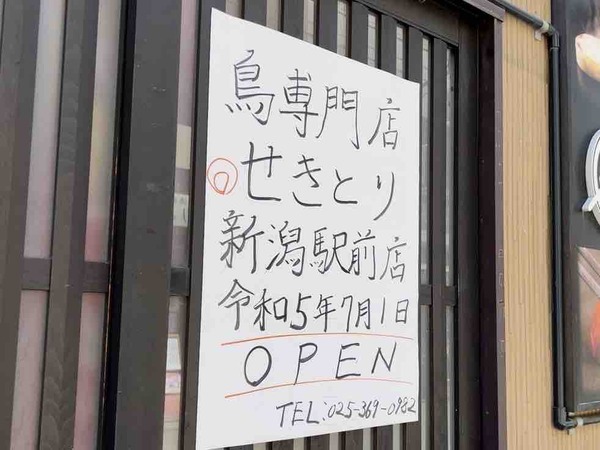 鳥専門店
せきとり
新潟駅前店
令和5年7月1日
OPEN
TEL:025-369-0982